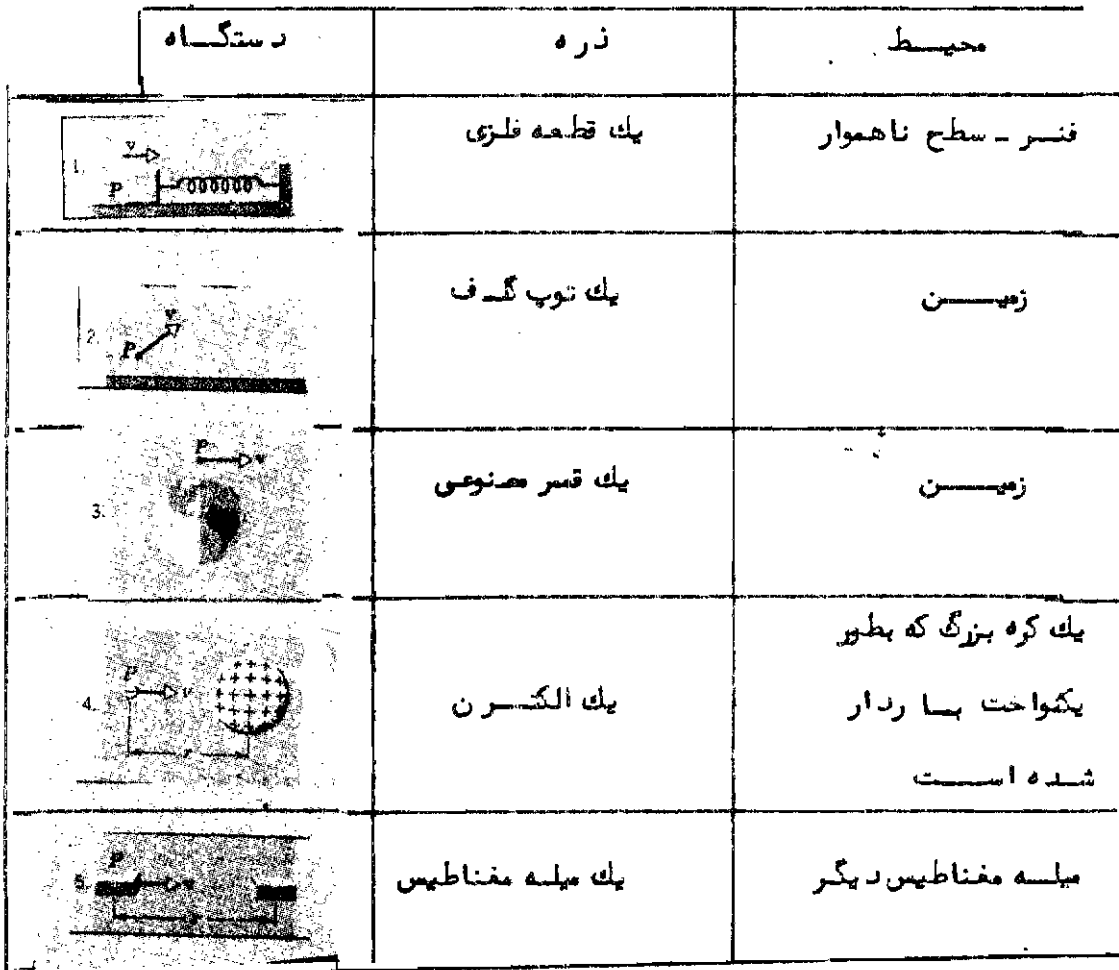 دستگاه	ذره	محیط
1. P v	یك قطعه فلزی	فنر - سطح ناهموار
2. P v	یك توپ گلف	زمین
3. P v	یك قمر مصنوعی	زمین
4. P v r	یك الکترن	یك کره بزرگ که بطور
یکنواخت باردار
شده است
5. P v r	یك میله مغناطیس	میله مغناطیس دیگر